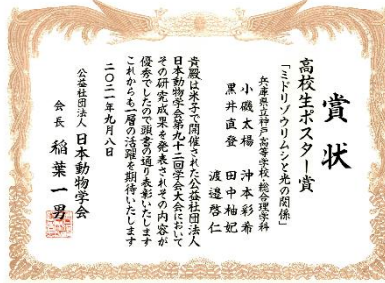 賞状
高校生ポスター賞
「ミドリゾウリムシと光の関係」
兵庫県立神戸高等学校 総合理学科
小磯太楊 沖本彩希
黒井直登 田中柚妃
渡邉啓仁
貴殿は米子で開催された公益社団法人
日本動物学会第九十二回学会大会において
その研究成果を発表されその内容が
優秀でしたので頭書の通り表彰いたします
これからも一層の活躍を期待いたします
二〇二一年九月八日
公益社団法人 日本動物学会
会長 稲葉一男